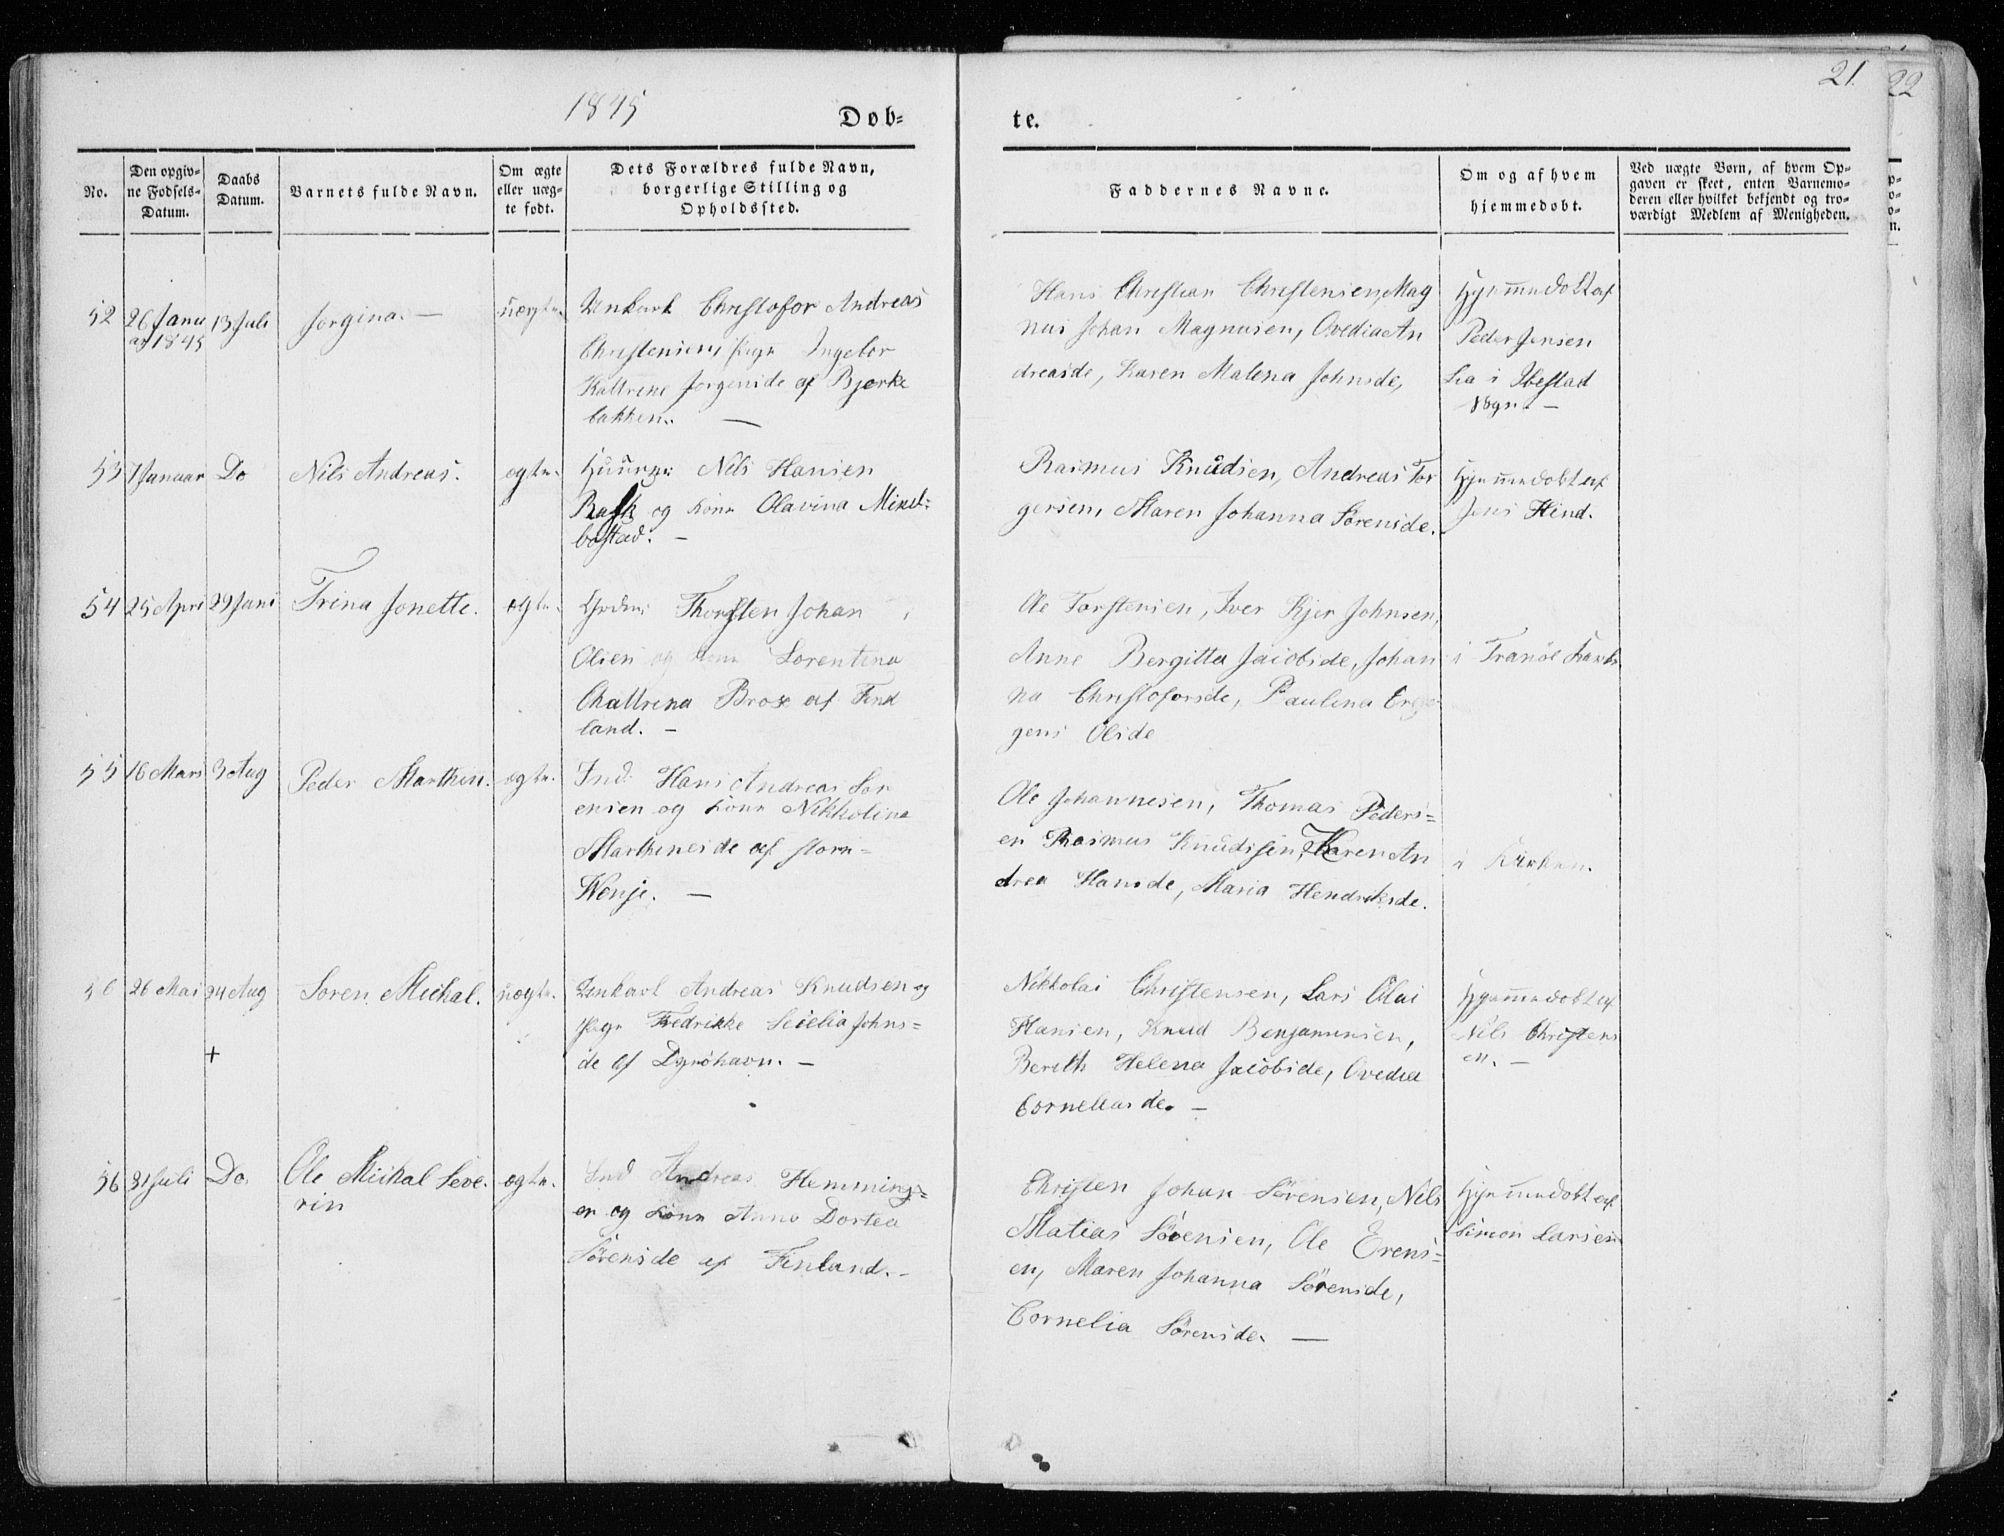 1845
21.
22
Døb-
te.
No.
Den opgiv-
ne Fødsels-
Datum.
Daabs
Datum.
Barnets fulde Navn.
Om ægte
eller uæg-
te født.
Dets Forældres fulde Navn,
borgerlige Stilling og
Opholdssted.
Faddernes Navne.
Om og af hvem
hjemmedøbt.
Ved uægte Børn, af hvem Op-
gaven er skeet, enten Barnemo-
deren eller hvilket bekjendt og tro-
værdigt Medlem af Menigheden.
52 26 Janu 13 Juli Jorgina. — uægte. Unkarl Christofor Andreas
ar 1845
Christensen, Pige Ingebor
Kattrine Jørgenide af Bjerke
bakken. —
Hans Christian Christensen, Mag
nus Johan Magnusen, Ovedia An
dreaide, Karen Malena Johnsde,
Hjemmedøbt af
Peder Jensen
Lia i Ibestad
Sogn. —
53 7 Januar Do Nils Andreas. egte. Huusm: Nils Hansen
Rask og kone Olavina Mikel-
bostad. —
Rasmus Knudsen, Andreas Tor
gersen, Maren Johanna Sørenide.
Hjemmedøbt af
Jens Hind.
54 25 Apri 29 Juni Trina Jonette. egte. Thorsten Johan
Olsen og kone Lorentina
Chattrina Brox af Find
land. —
Ole Torstensen, Iver Kjer Johnsen,
Anne Bergitta Jacobide, Johan
na Christoforsde, Paulina
gens Olide
i Tranöe
55 16 Mars 3 Aug Peder Marthin. egte. Ind: Hans Andreas Sor
ensen og kone Nikkolina
Marthineide af Store-
Wenje. —
Ole Johannesen, Thomas Peders-
en Rasmus Knudsen, Karen An
drea Hansde, Maria Hendriksde.
i Kirken.
26 Mai 24 Aug Soren Mickal. uegte. Unkarl Andreas Knudsen og
Pige Fredrikke Secielia Johns-
de af Dyröhavn. —
+
Nikkolai Christensen, Lars Olai
Hansen, Knud Benjaminsen,
Berith Helena Jacobide, Ovedia
Corneliasde. —
Hjemmedøbt af
Nils Christens
en. —
56 31 Juli Do. Ole Mickal Seve- egte. Ind Andreas Hemming-
rin
en og kone Anna Dortea
Sörenside af Finland. —
Christen Johan Sörensen, Nils
Matias Sörensen, Ole Erens-
en, Maren Johanna Sörenside,
Cornelia Sörenside. —
Hjemmedøbt af
Simon Larsen